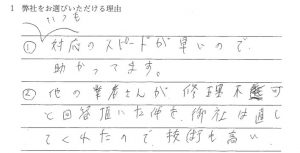 1 弊社をお選びいただける理由
いつも
① 対応のスピードが早いので、
助かってます。
② 他の業者さんが修理不可
と回答頂いた件を、御社は直し
てくれたので、技術も高い。